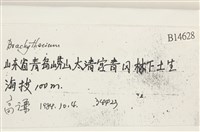 B14628
Brachythecium
山东省青岛崂山太清宫青口林下土生
海拔100m.
高谦 1984.10.4.